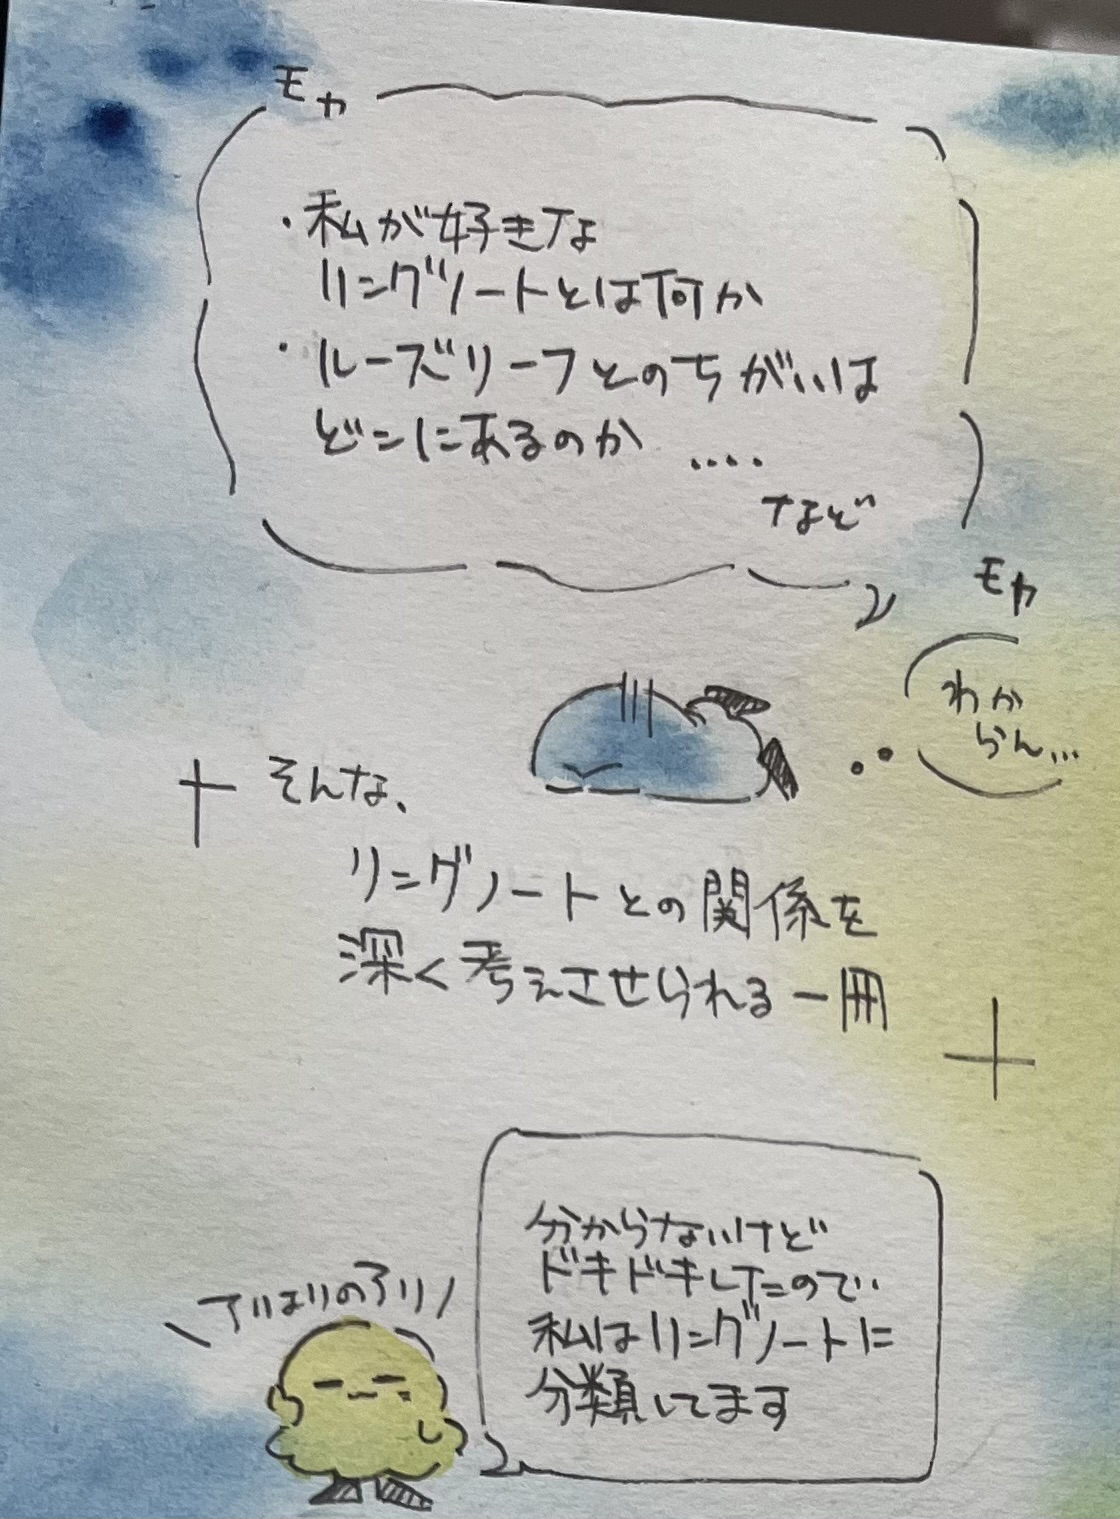 モヤ
・私が好きな
リングノートとは何か
・ルーズリーフとのちがいは
どこにあるのか ....
など
モヤ
わか
らん...
そんな、
リングノートとの関係を
深く考えさせられる一冊
分からないけど
ドキドキしたので
私はリングノートに
分類してます